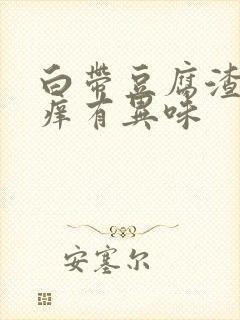 白带豆腐渣
痒有异味
安塞尔